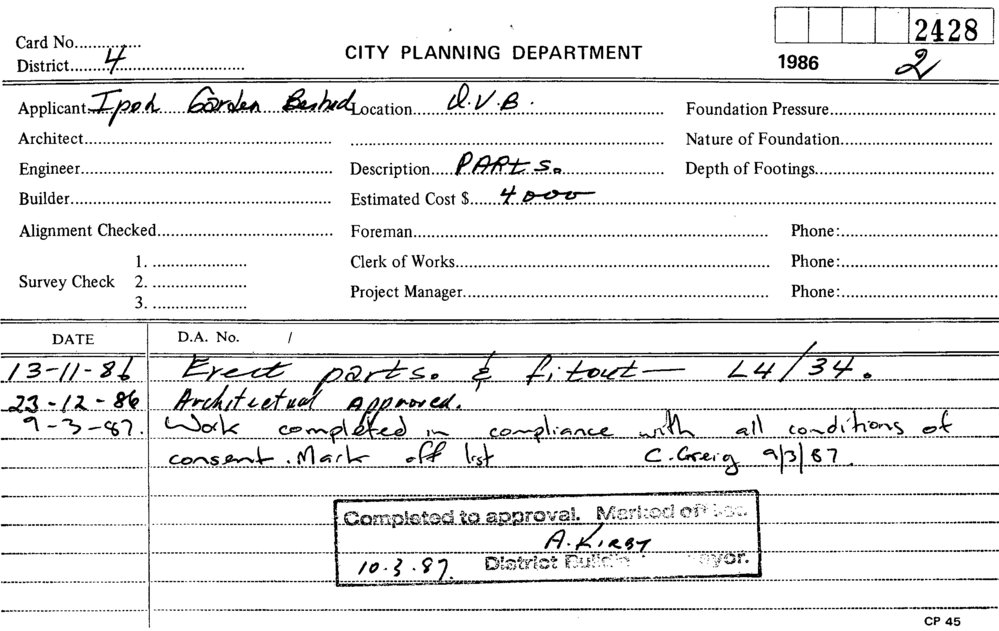 Card No............... 2428
District....4.... CITY PLANNING DEPARTMENT 1986 2
Applicant Ipoh Garden Berhad Location Q.V.B. Foundation Pressure
Architect Nature of Foundation
Engineer Description PARTS. Depth of Footings
Builder Estimated Cost $ 4000
Alignment Checked Foreman Phone:
1. Clerk of Works Phone:
Survey Check 2.
Project Manager Phone:
3.
DATE D.A. No. /
13-11-86 Erect parts. & fitout — L4/34.
23-12-86 Architectual Approved.
9-3-87. Work completed in compliance with all conditions of
consent. Mark off list C. Greig 9/3/87.
Completed to approval. Marked off
A. KIRBY
10.3.87. District
CP 45